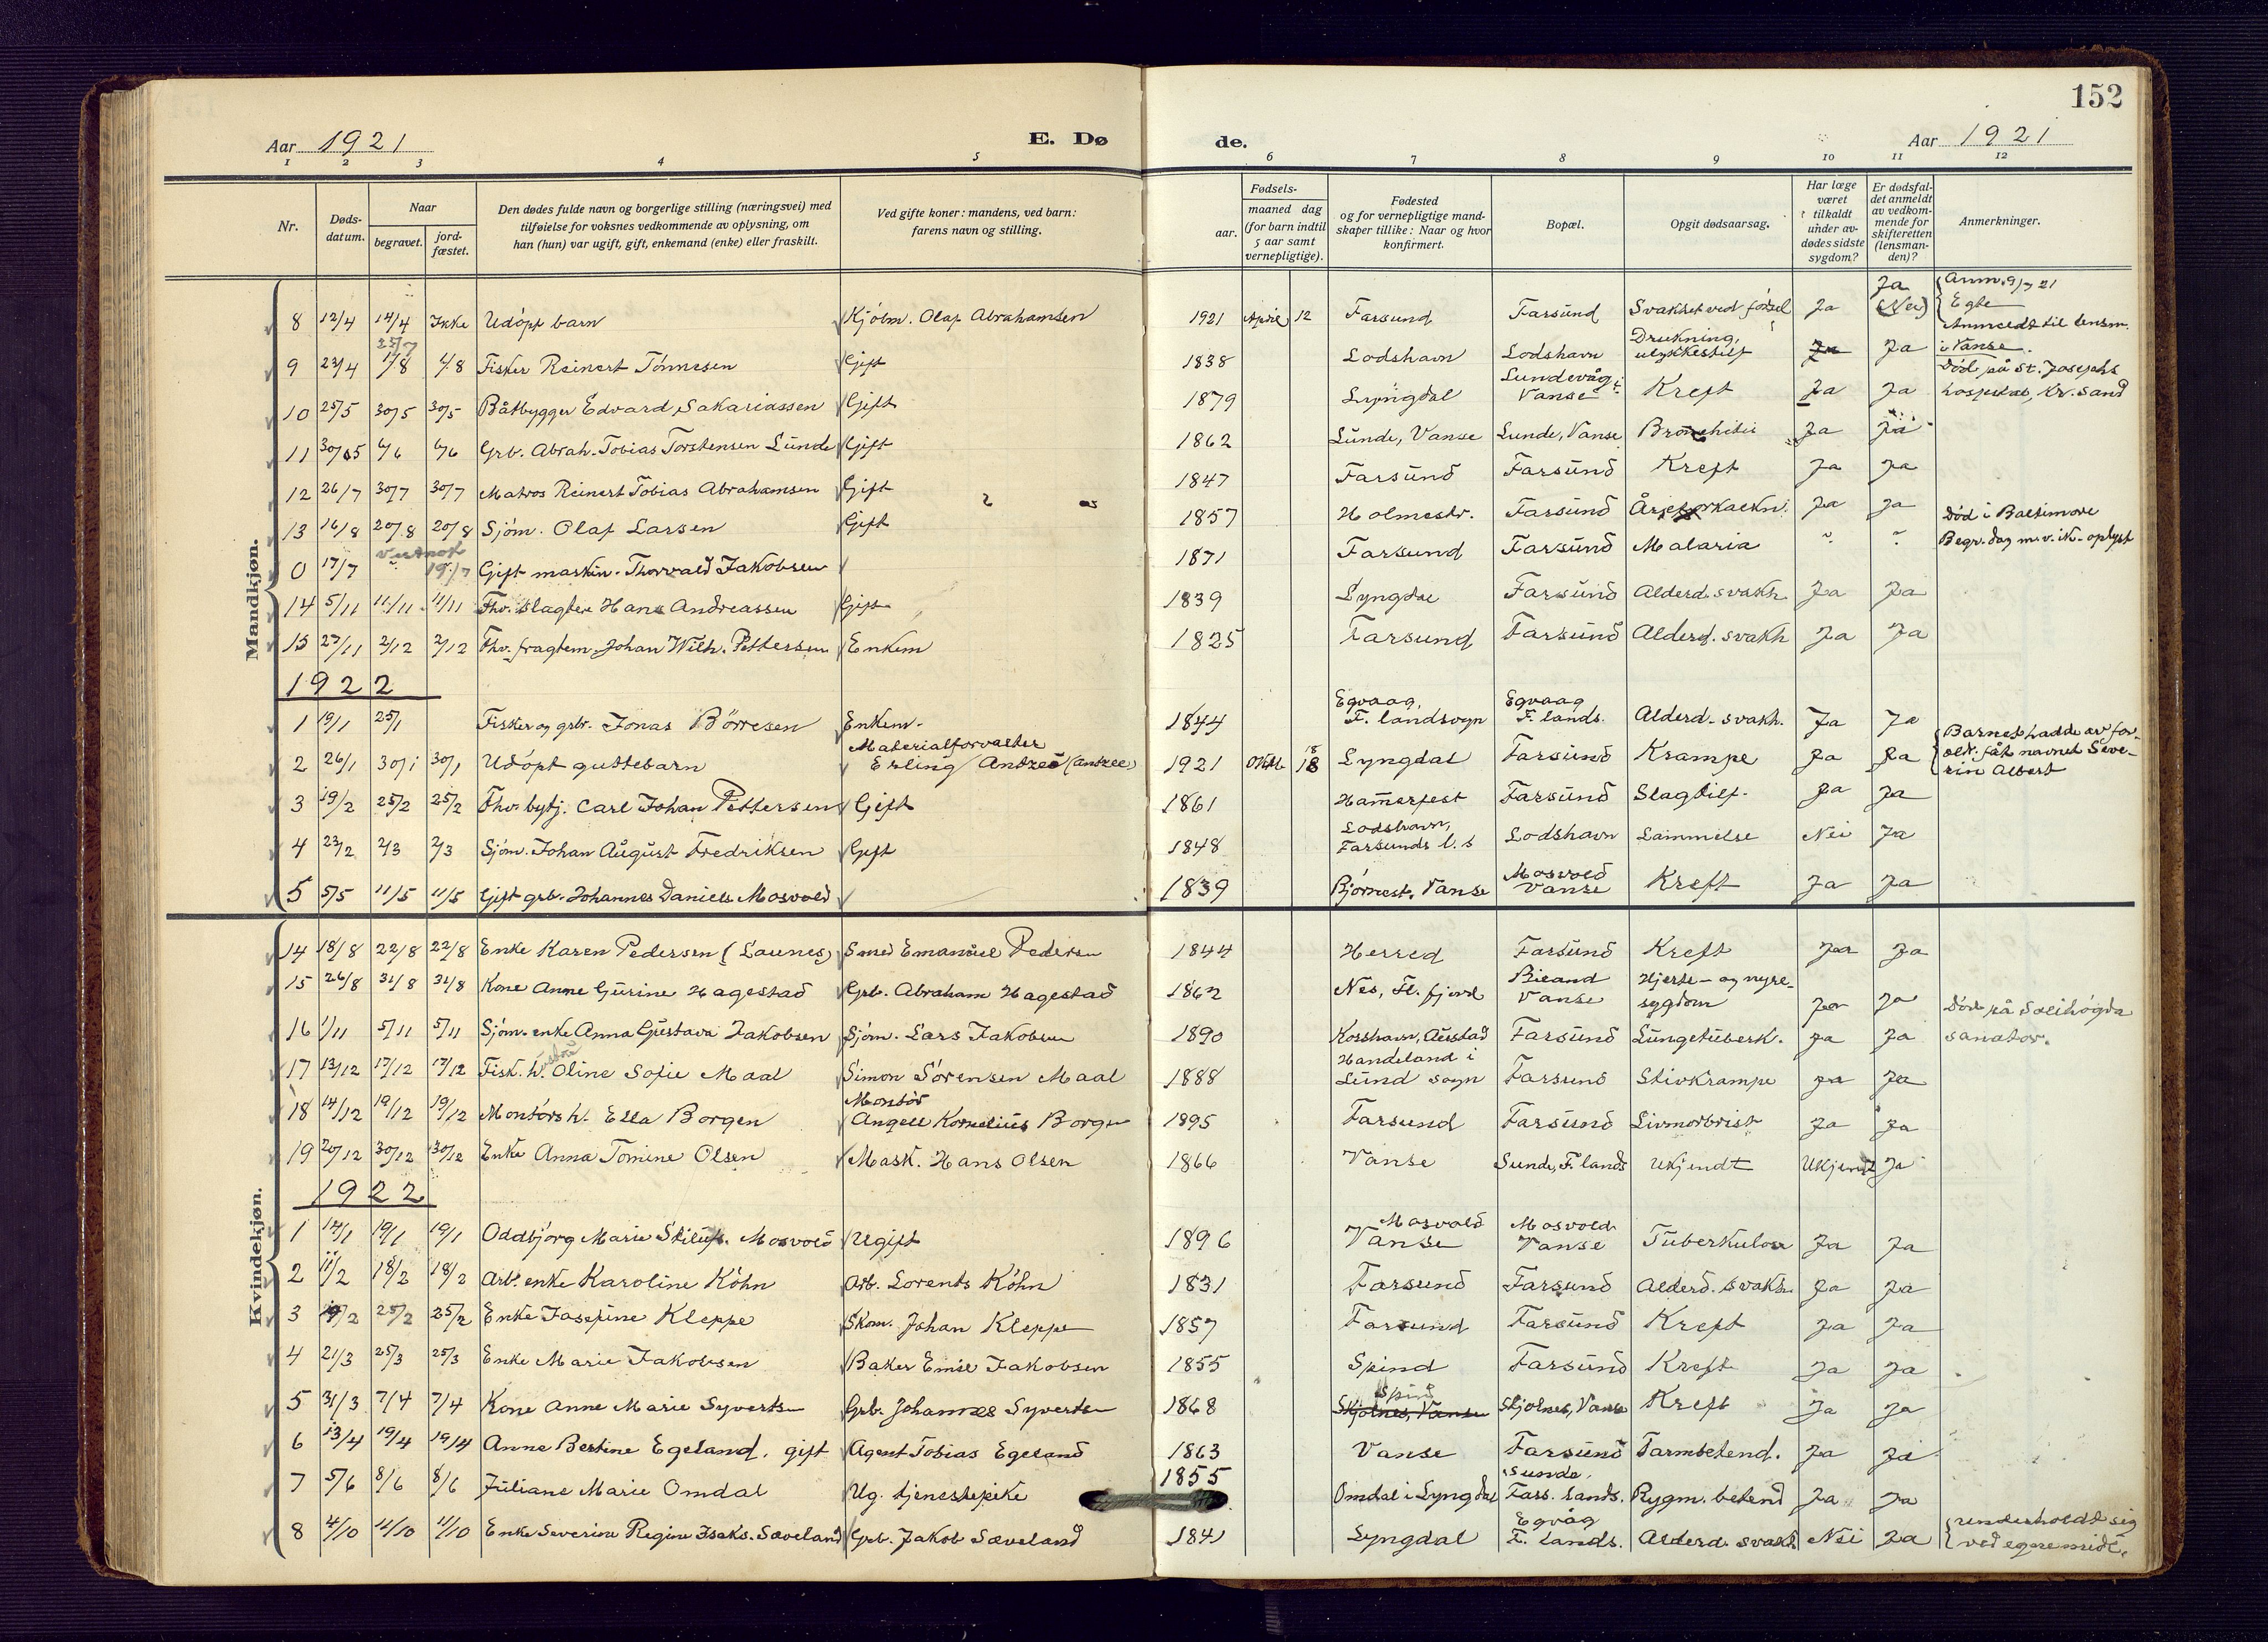 152
Aar 1921 E. Dø de. Aar 1921
1 2 3 4 5 6 7 8 9 10 11 12
Nr. Døds-datum. Naar begravet. jord-fæstet. Den dødes fulde navn og borgerlige stilling (næringsvei) med tilføielse for voksnes vedkommende av oplysning, om han (hun) var ugift, gift, enkemand (enke) eller fraskilt. Ved gifte koner: mandens, ved barn: farens navn og stilling. Fødsels- aar. maaned dag (for barn indtil 5 aar samt vernepligtige). Fødested og for vernepligtige mandskaper tillike: Naar og hvor konfirmert. Bopæl. Opgit dødsaarsag. Har læge været tilkaldt under avdødes sidste sygdom? Er dødsfaldet anmeldt av vedkommende for skifteretten (lensmanden)? Anmerkninger.
Mandkjøn.
8 12/4 14/4 Ikke Udöpt barn Kjölm. Olaf Abrahamsen 1921 April 12 Farsund Farsund Svakhet ved födsel Ja Ja (Nei) Anm. 9/7 21 Egte
9 23/4 25/7 1/8 1/8 Fisker Reinert Tönnesen Gift 1838 Lodshavn Lodshavn Drukning, ulykkestilf Ja Ja Anmeldt til lensm. i Vanse.
10 25/5 30/5 30/5 Båtbygger Edvard Sakariassen Gift 1879 Lyngdal Lundevåg i Vanse Kreft Ja Ja Död på St. Josephs hospital, Kr.sand
11 30/5 6/6 6/6 Grb. Abrah. Tobias Torstensen Lunde Gift 1862 Lunde, Vanse Lunde, Vanse Bronchitis Ja Ja
12 26/7 30/7 30/7 Matros Reinert Tobias Abrahamsen Gift 1847 Farsund Farsund Kreft Ja Ja
13 16/8 20/8 20/8 Sjöm. Olaf Larsen Gift 1857 Holmestr. Farsund Åreforkalkn. Ja Ja
0 17/7 19/7 Gift maskin. Thorvald Jakobsen 1871 Farsund Farsund Malaria Död i Baltimore Begr. dag m.v. ik. oplyst
14 5/11 11/11 11/11 Fhv. slagter Hans Andreassen Gift 1839 Lyngdal Farsund Alderd. svakh. Ja Ja
15 27/11 2/12 2/12 Fhv. fragtem. Johan Wilh. Pettersen Enkem 1825 Farsund Farsund Alderd. svakh Ja Ja
1922
1 19/1 25/1 Fisker og grb. Jonas Börresen Enkem. 1844 Egvaag, F. landsogn Egvaag F. lands. Alderd. svakh. Ja Ja
2 26/1 30/1 30/1 Udöpt guttebarn Materialforvalter Erling Andreé (Andree) 1921 Oktb 18 18 Lyngdal Farsund Krampe Ja Ja Barnet hadde av foreldr. fåt navnet Severin Albert
3 19/2 25/2 25/2 Fhv. bytj. Carl Johan Pettersen Gift 1861 Hamerfest Farsund Slagtilf. Ja Ja
4 23/2 2/3 2/3 Sjöm. Johan August Fredriksen Gift 1848 Lodshavn, Farsunds l.s Lodshavn Lammelse Nei Ja
5 5/5 11/5 11/5 Gift grb. Johannes Daniels. Mosvold 1839 Björnest. Vanse Mosvold Vanse Kreft Ja Ja
Kvindekjøn.
14 18/8 22/8 22/8 Enke Karen Pedersen (Launes) Smed Emanuel Pedersen 1844 Herred Farsund Kreft Ja Ja
15 26/8 31/8 31/8 Kone Anne Gurine Hagestad Grb. Abraham Hagestad 1862 Nes, Fl. fjord Vanse Hjerte- og nyresygdom Ja Ja
16 1/11 5/11 5/11 Sjöm. enke Anna Gustava Jakobsen Sjöm. Lars Jakobsen 1890 Korshavn, Austad Farsund Lungetuberk. Ja Ja Död på Solihögda sanator.
17 13/12 17/12 17/12 Fisk. h. Oline Sofie Maal Simon Sörensen Maal 1888 Handeland i Lund sogn Farsund Stivkrampe Ja Ja
18 14/12 19/12 19/12 Montörs h. Ella Borgen Montör Angell Kornelius Borgen 1895 Farsund Farsund Livmorbrist Ja Ja
19 20/12 30/12 30/12 Enke Anna Tomine Olsen Mask. Hans Olsen 1866 Vanse Sunde, F. lands Ukjendt Ukjendt Ja
1922
1 14/1 19/1 19/1 Oddbjörg Marie Stiluf. Mosvold Ugift 1896 Mosvold Vanse Mosvold Vanse Tuberkulose Ja Ja
2 11/2 18/2 18/2 Arb. enke Karoline Köhn Arb. Lorents Köhn 1831 Farsund Farsund Alderd. svakh. Ja Ja
3 19/2 25/2 25/2 Enke Josefine Kleppe Skom. Johan Kleppe 1857 Farsund Farsund Kreft Ja Ja
4 21/3 25/3 25/3 Enke Marie Jakobsen Baker Emil Jakobsen 1855 Spind Farsund Kreft Ja Ja
5 31/3 7/4 7/4 Kone Anne Marie Syvertsen Grb. Johannes Syvertsen 1868 Spind Skjolnes, Vanse Skjolnes, Vanse Kreft Ja Ja
6 13/4 19/4 19/4 Anne Bertine Egeland, gift Agent Tobias Egeland 1863 Vanse Farsund Tarmbetend. Ja Ja
7 5/6 8/6 8/6 Juliane Marie Omdal Ug. tjenestepike 1855 Omdal i Lyngdal Sunde, Fars. lands. Rygm. betend Ja Ja
8 4/10 11/10 11/10 Enke Severine Regine Isaks. Sæveland Grb. Jakob Sæveland 1841 Lyngdal Egvåg F. Lands. Alderd. svakh Nei Ja underholdt sig ved egne midl.